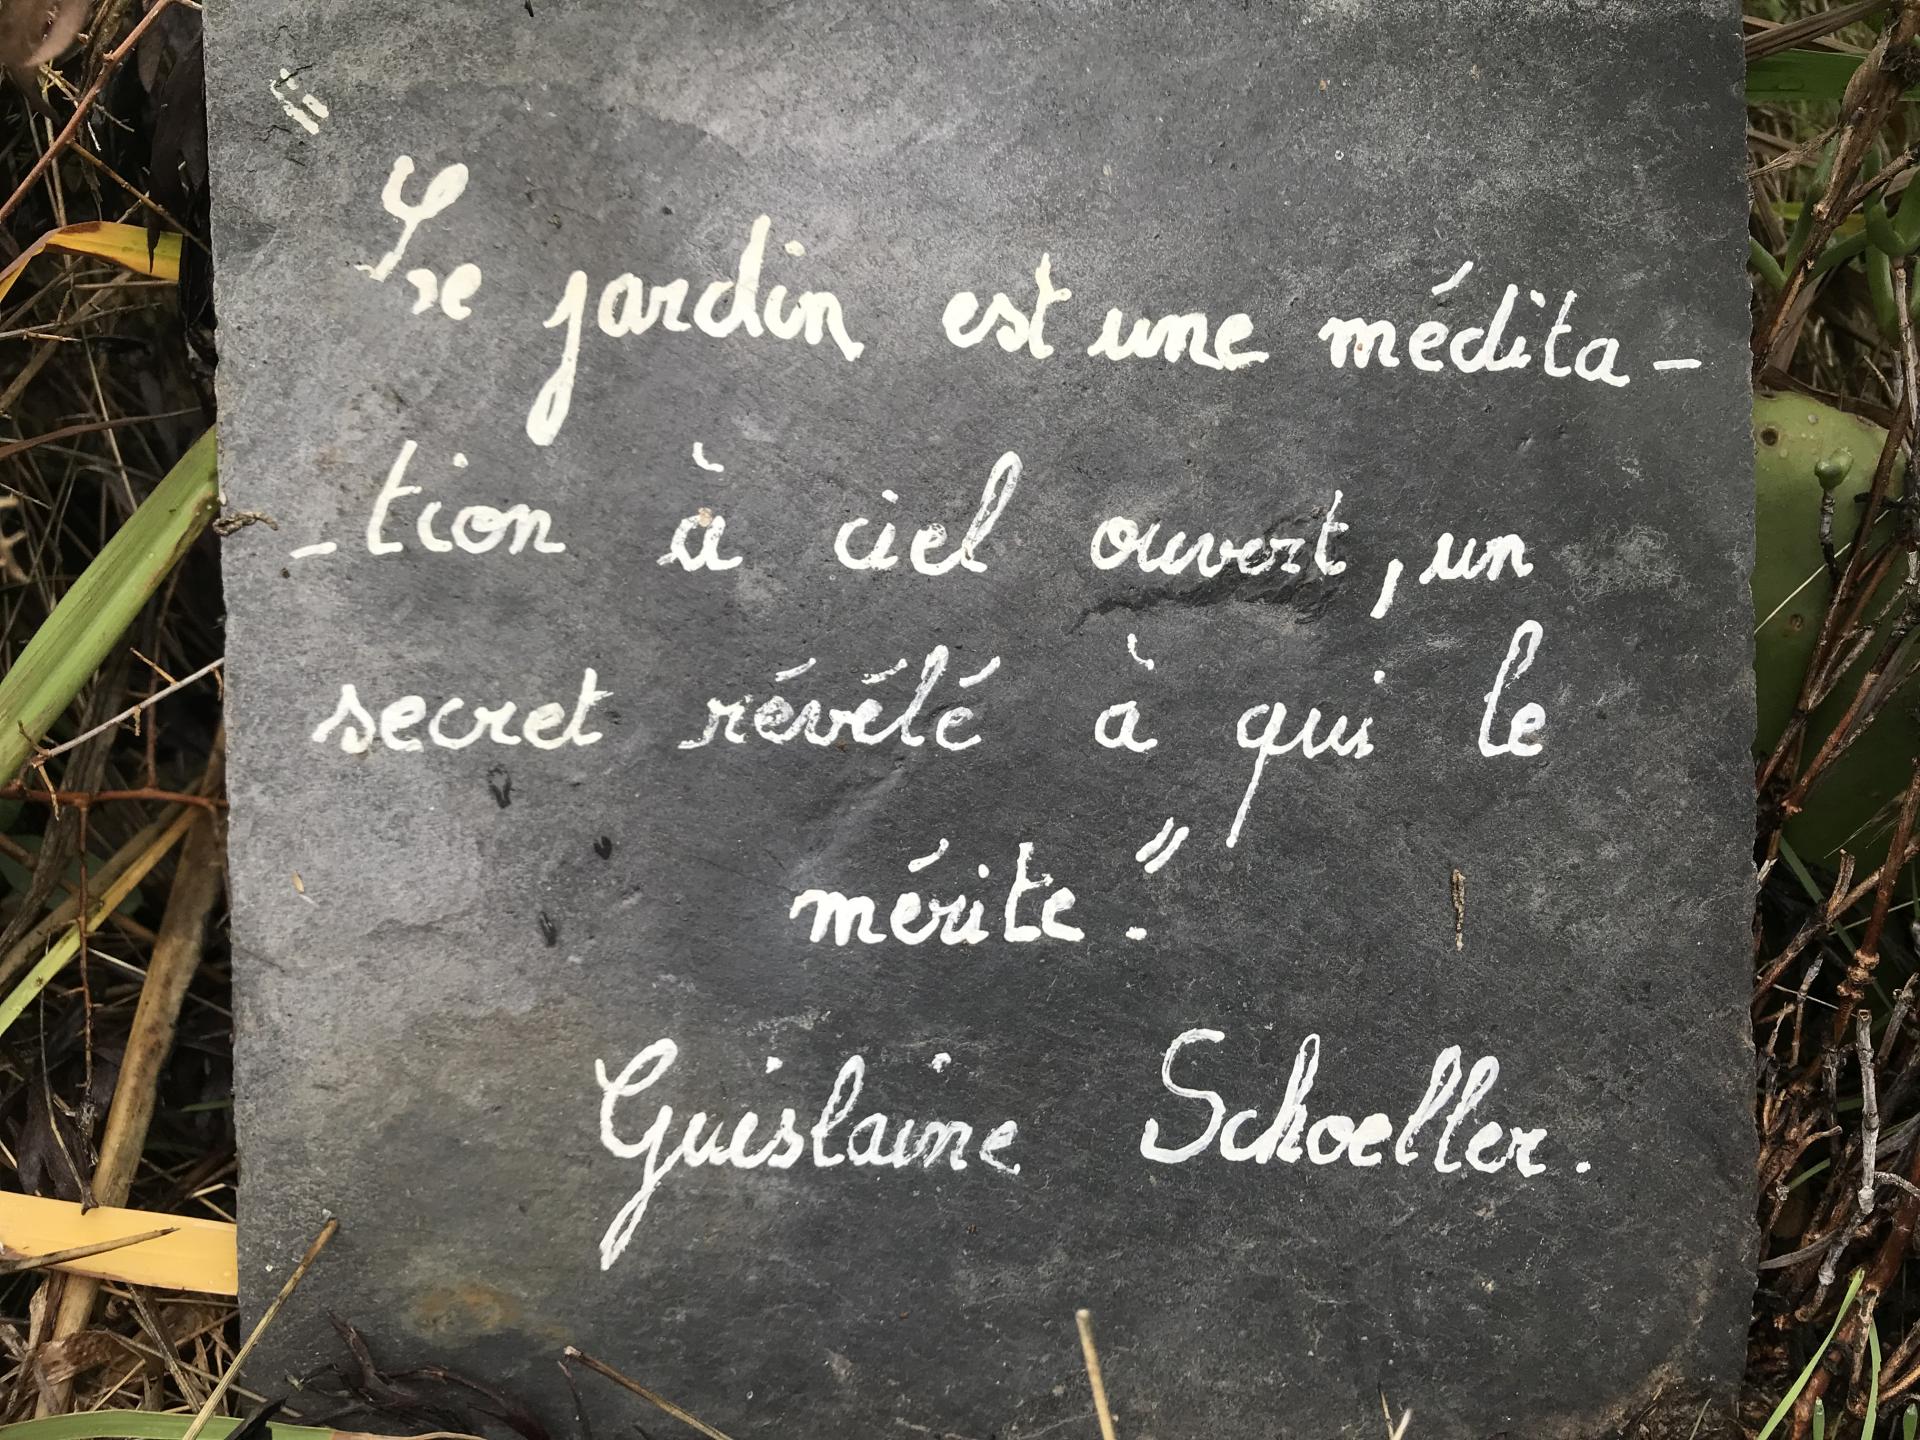 "Le jardin est une médita-
-tion à ciel ouvert, un
secret révélé à qui le
mérite."
Guislaine Schoeller.